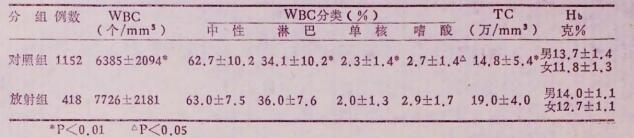 分 组 例数 WBC WBC分类(%) TC Hb
(个/mm³) 中性 淋巴 单核 嗜酸 (万/mm³) 克%
对照组 1152 6385±2094* 62.7±10.2 34.1±10.2* 2.3±1.4* 2.7±1.4△ 14.8±5.4* 男13.7±1.4
女11.8±1.3
放射组 418 7726±2181 63.0±7.5 36.0±7.6 2.0±1.3 2.9±1.7 19.0±4.0 男14.0±1.1
女12.7±1.1
*P<0.01 △P<0.05